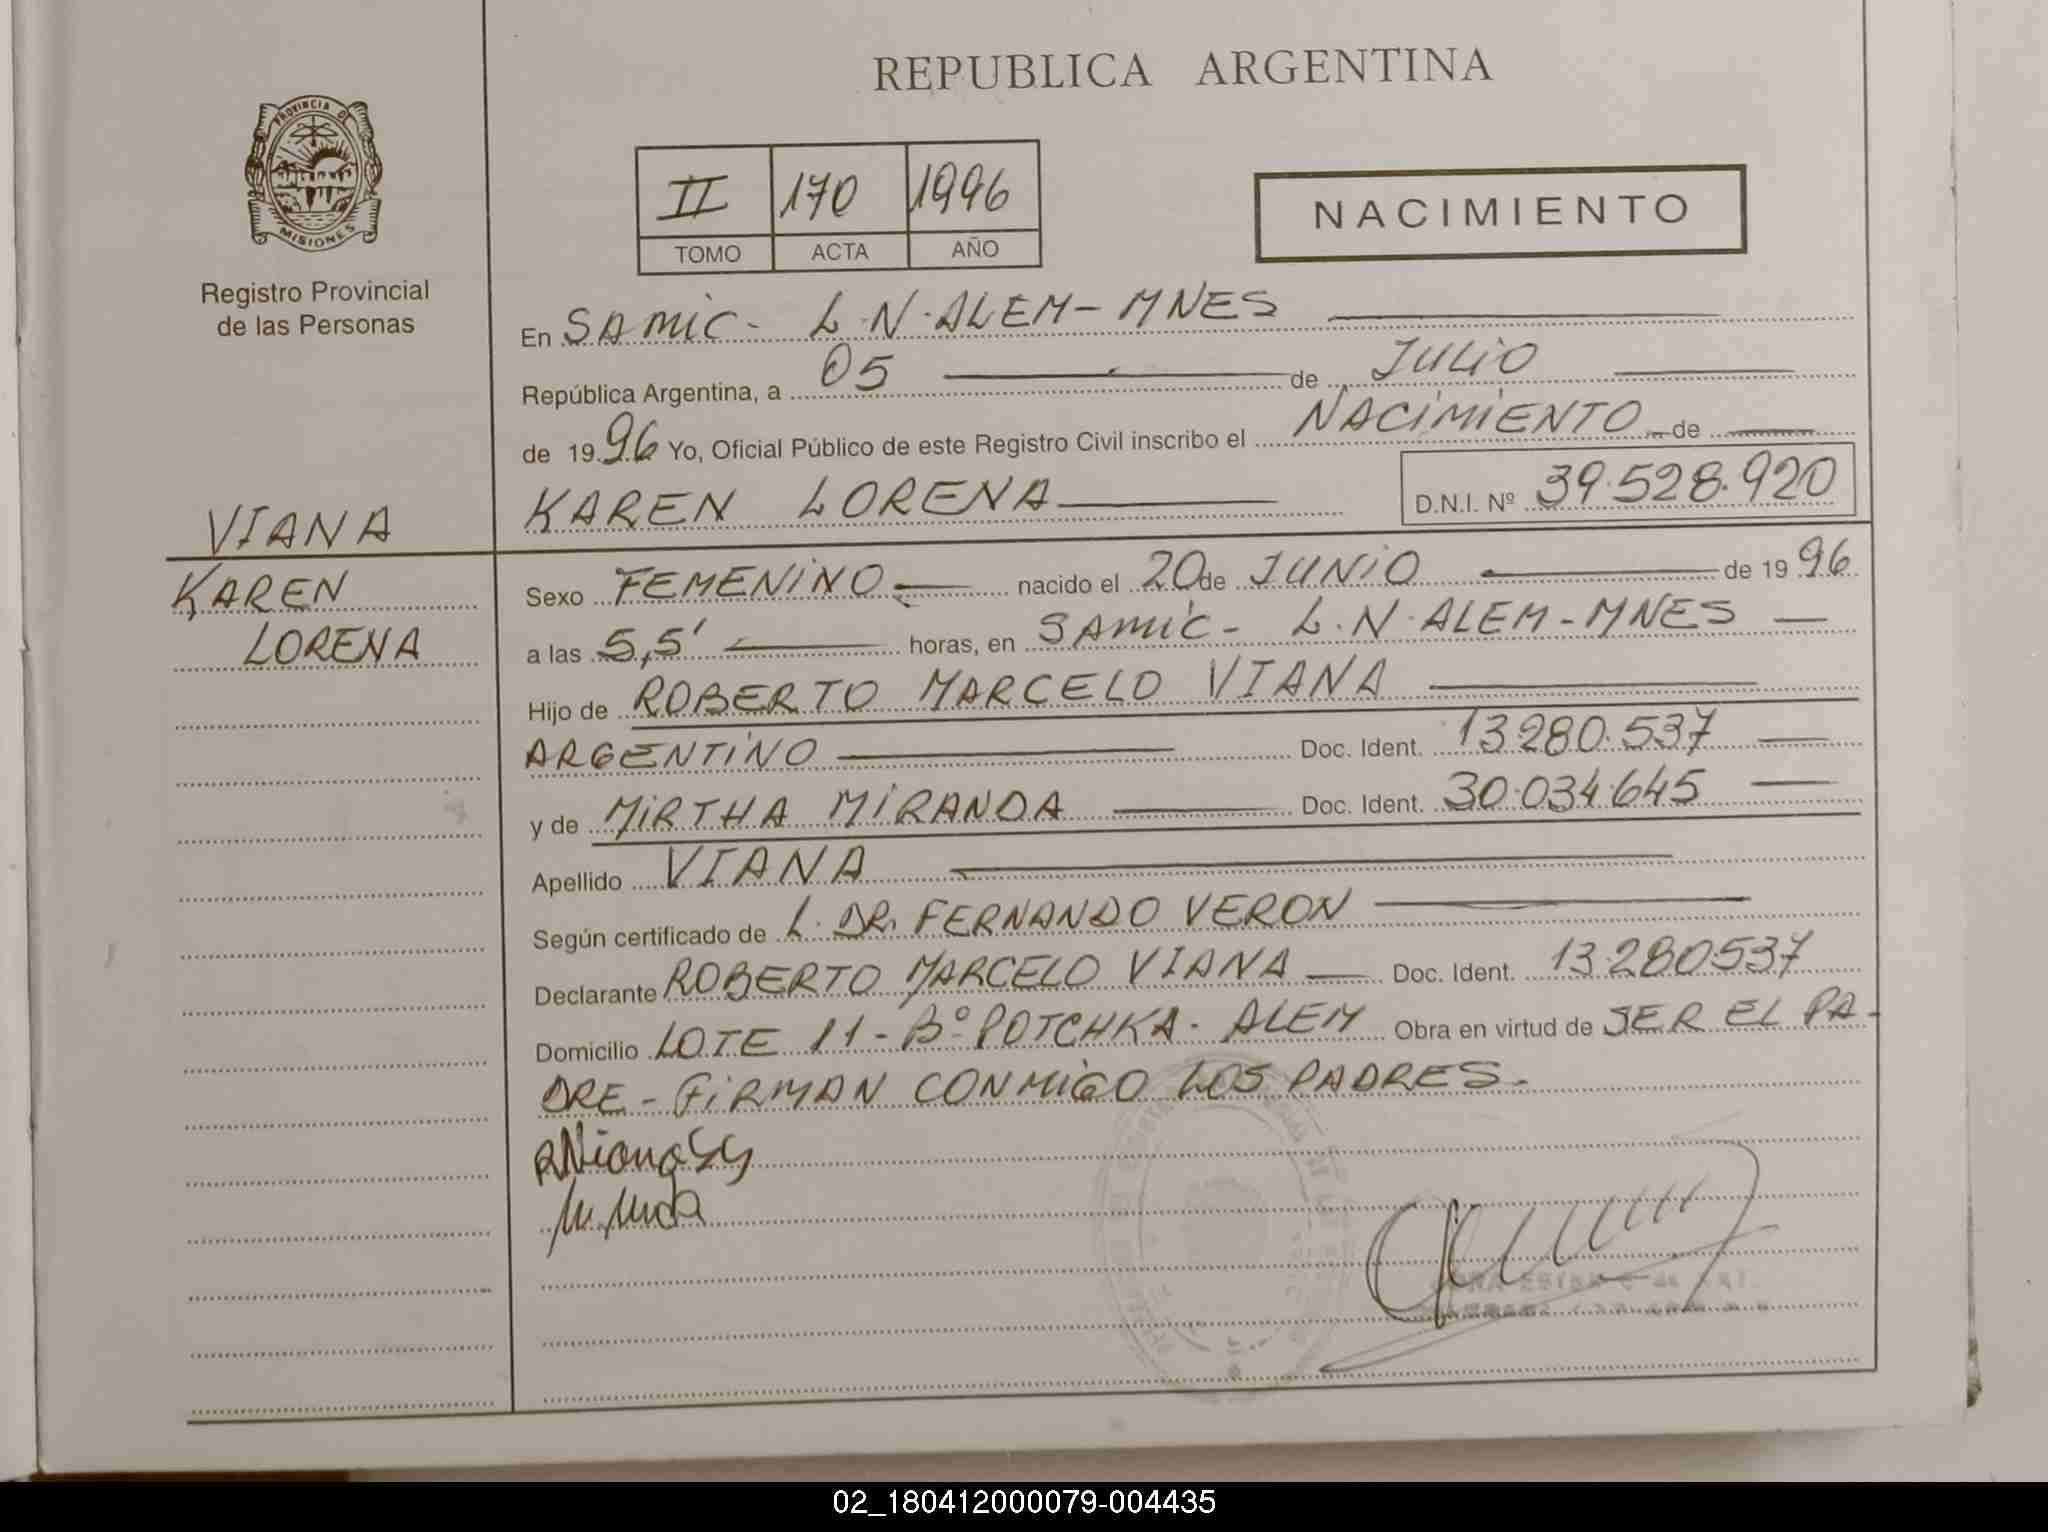 REPUBLICA ARGENTINA
PROVINCIA DE
MISIONES
Registro Provincial
de las Personas
II 170 1996
TOMO ACTA AÑO
NACIMIENTO
En SAMIC - L.N. ALEM - MNES
República Argentina, a 05 de JULIO
de 1996 Yo, Oficial Público de este Registro Civil inscribo el NACIMIENTO de
KAREN LORENA D.N.I. Nº 39.528.920
VIANA
KAREN
LORENA
Sexo FEMENINO nacido el 20 de JUNIO de 1996
a las 5,5' horas, en SAMIC - L.N. ALEM - MNES
Hijo de ROBERTO MARCELO VIANA
ARGENTINO Doc. Ident. 13.280.537
y de MIRTHA MIRANDA Doc. Ident. 30.034.645
Apellido VIANA
Según certificado de L. DR. FERNANDO VERON
Declarante ROBERTO MARCELO VIANA Doc. Ident. 13.280.537
Domicilio LOTE 11 - Bº POTCHKA - ALEM Obra en virtud de SER EL PA-
DRE - FIRMAN CONMIGO LOS PADRES.
02_180412000079-004435